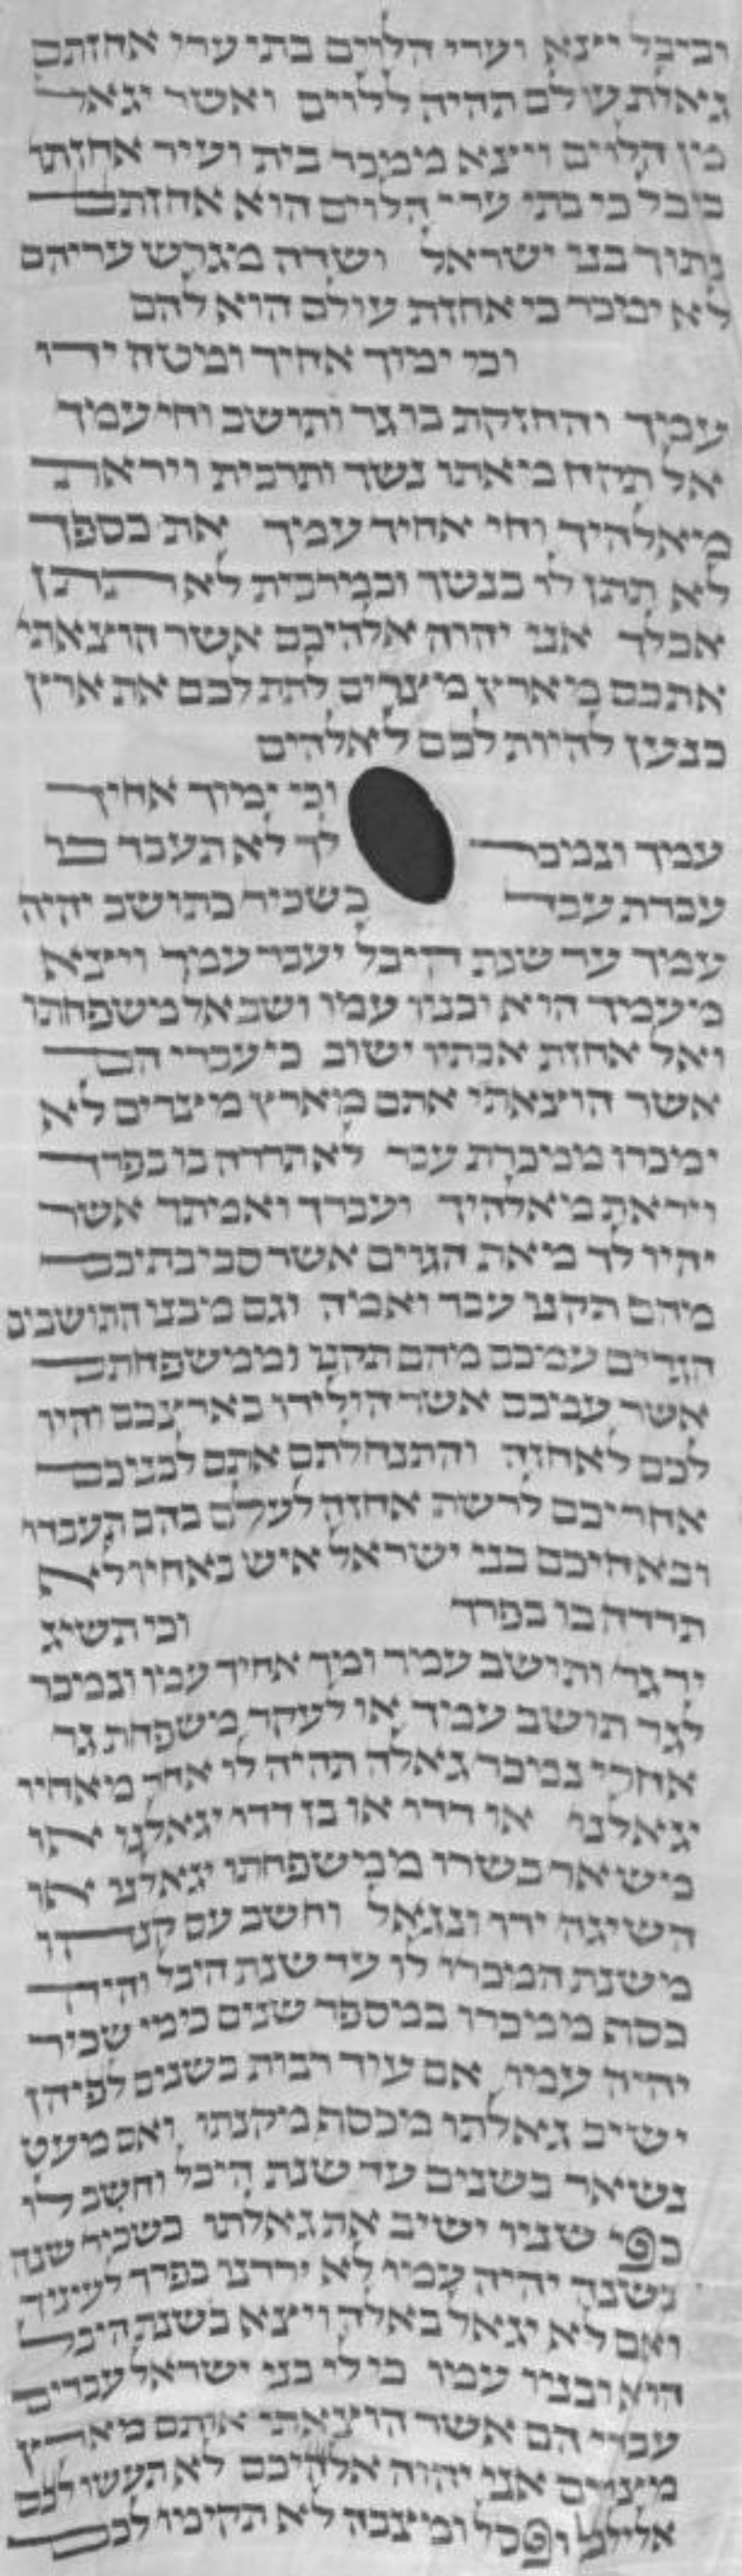 וביבל ייצא וערי הלוים בתי ערי אחזתם
גאות עולם תהיה ללוים ואשר יגאל
מין הלוים וייצא מימכר בית ועיר אחזתו
ביבל כי בתי ערי הלוים הוא אחזתם
בתוך בני ישראל ושדה מגרש עריהם
לא ימכר כי אחזת עולם הוא להם
וכי ימוך אחיך ומטה ידו
עמך והחזקת בו גר ותושב וחי עמך
אל תקח מאתו נשך ותרבית ויראת
מאלהיך וחי אחיך עמך את כספך
לא תתן לו בנשך ובמרבית לא תתן
אכלך אני יהוה אלהיכם אשר הוצאתי
אתכם מארץ מצרים לתת לכם את ארץ
כנען להיות לכם לאלהים
וכי ימוך אחיך
עמך ונמכר לך לא תעבד בו
עבדת עבד כשכיר כתושב יהיה
עמך עד שנת היבל יעבד עמך ויצא
מעמך הוא ובניו עמו ושב אל משפחתו
ואל אחזת אבתיו ישוב כי עבדי הם
אשר הוצאתי אתם מארץ מצרים לא
ימכרו ממכרת עבד לא תרדה בו בפרך
ויראת מאלהיך ועבדך ואמתך אשר
יהיו לך מאת הגוים אשר סביבתיכם
מהם תקנו עבד ואמה וגם מבני התושבים
הגרים עמכם מהם תקנו וממשפחתם
אשר עמכם אשר הולידו בארצכם והיו
לכם לאחזה והתנחלתם אתם לבניכם
אחריכם לרשת אחזה לעלם בהם תעבדו
ובאחיכם בני ישראל איש באחיו לא
תרדה בו בפרך וכי תשיג
יד גר ותושב עמך ומך אחיך עמו ונמכר
לגר תושב עמך או לעקר משפחת גר
אחרי נמכר גאלה תהיה לו אחד מאחיו
יגאלנו או דדו או בן דדו יגאלנו או
משאר בשרו ממשפחתו יגאלנו או
השיגה ידו ונגאל וחשב עם קנהו
משנת המכרו לו עד שנת היבל והיה
כסה ממכרו במספר שנים כימי שכיר
יהיה עמו אם עוד רבות בשנים לפיהן
ישיב גאלתו מכסה מקנתו ואם מעט
נשאר בשנים עד שנת היבל וחשב לו
כפי שניו ישיב את גאלתו כשכיר שנה
בשנה יהיה עמו לא ירדנו בפרך לעיניך
ואם לא יגאל באלה ויצא בשנת היבל
הוא ובניו עמו כי לי בני ישראל עבדים
עבדי הם אשר הוצאתי אותם מארץ
מצרים אני יהוה אלהיכם לא תעשו לכם
אלילם ופסל ומצבה לא תקימו לכם